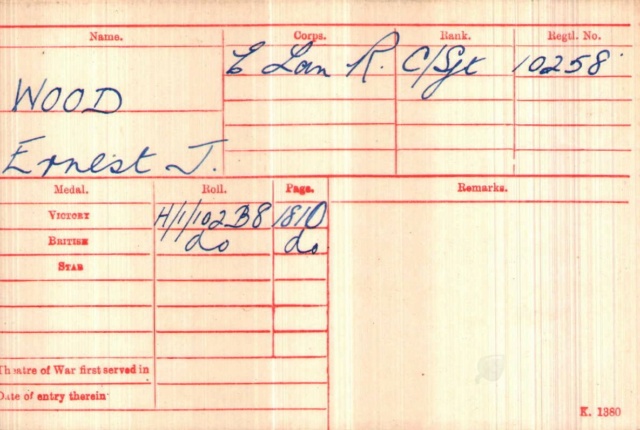 Name. Corps. Rank. Regtl. No.
WOOD E Lan R. C/Sgt 10258
Ernest J.
Medal. Roll. Page. Remarks.
VICTORY H/1/102B8 1810
BRITISH do do
STAR
Theatre of War first served in
Date of entry therein
K. 1380